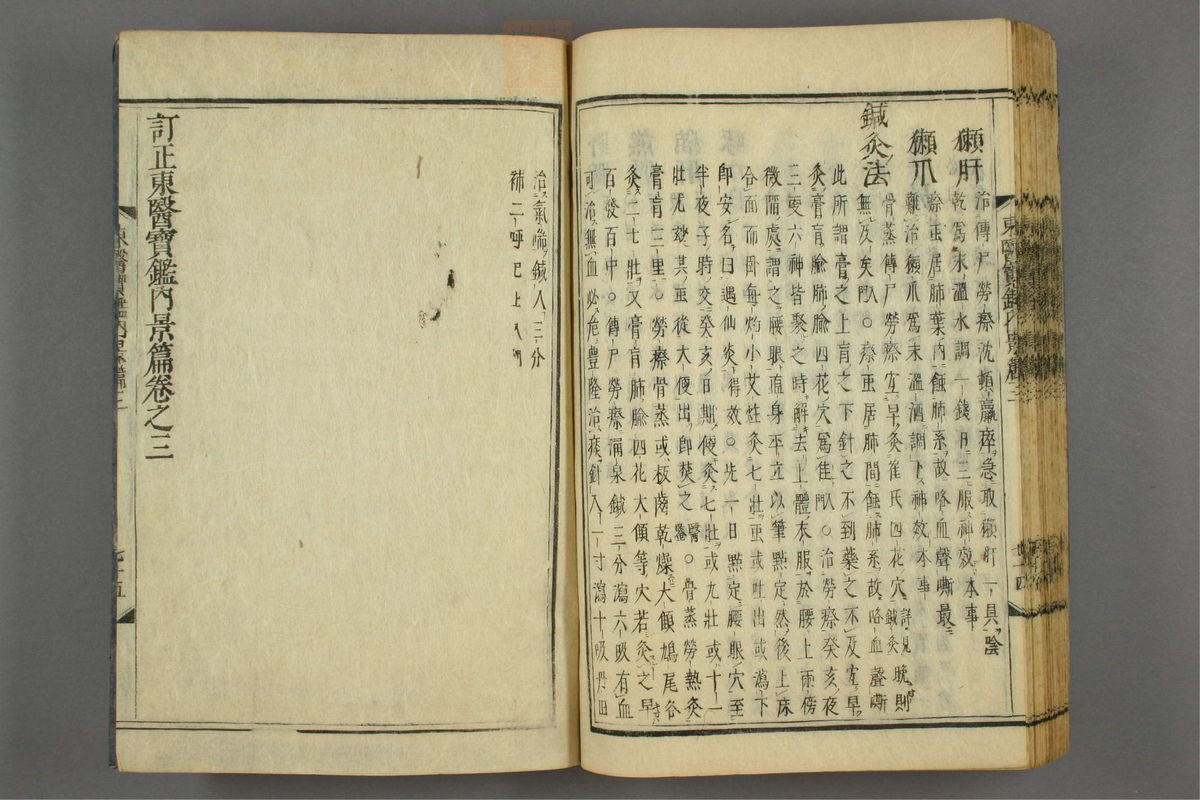 獺肝 治傳尸勞瘵沈頓羸瘁急取獺肝一具陰
乾爲末溫水調一錢日三服神效本事
獺爪 瘵虫居肺葉內蝕肺系故咯血聲嘶最
難治獺爪爲末溫酒調下神效本事
鍼灸法 骨蒸傳尸勞瘵宜早灸崔氏四花穴詳見鍼灸晚則
無及矣入門○瘵虫居肺間蝕肺系故咯血聲嘶
此所謂膏之上肓之下針之不到藥之不及宜早
灸膏肓腧肺腧四花穴爲佳入門○治勞瘵癸亥夜
三更六神皆聚之時解去上體衣服於腰上兩傍
微陷處謂之腰眼直身平立以筆點定然後上床
合面而臥每灼小艾炷灸七壯虫或吐出或瀉下
卽安名曰遇仙灸得效○先一日點定腰眼穴至
半夜子時交癸亥日期便灸七壯或九壯或十一
壯尤玅其虫從大便出卽焚之醫鑑○骨蒸勞熱灸
膏肓三里○勞瘵骨蒸或板齒乾燥大顀鳩尾各
灸二七壯又膏肓肺腧四花大顀等穴若灸之早
百發百中○傳尸勞瘵涌泉鍼三分瀉六吸有血
可治無血必危豊隆治痰針入一寸瀉十吸丹田
治氣喘鍼入三分
補二呼已上入門
訂正東醫寶鑑內景篇卷之三
東醫寶鑑內景篇三